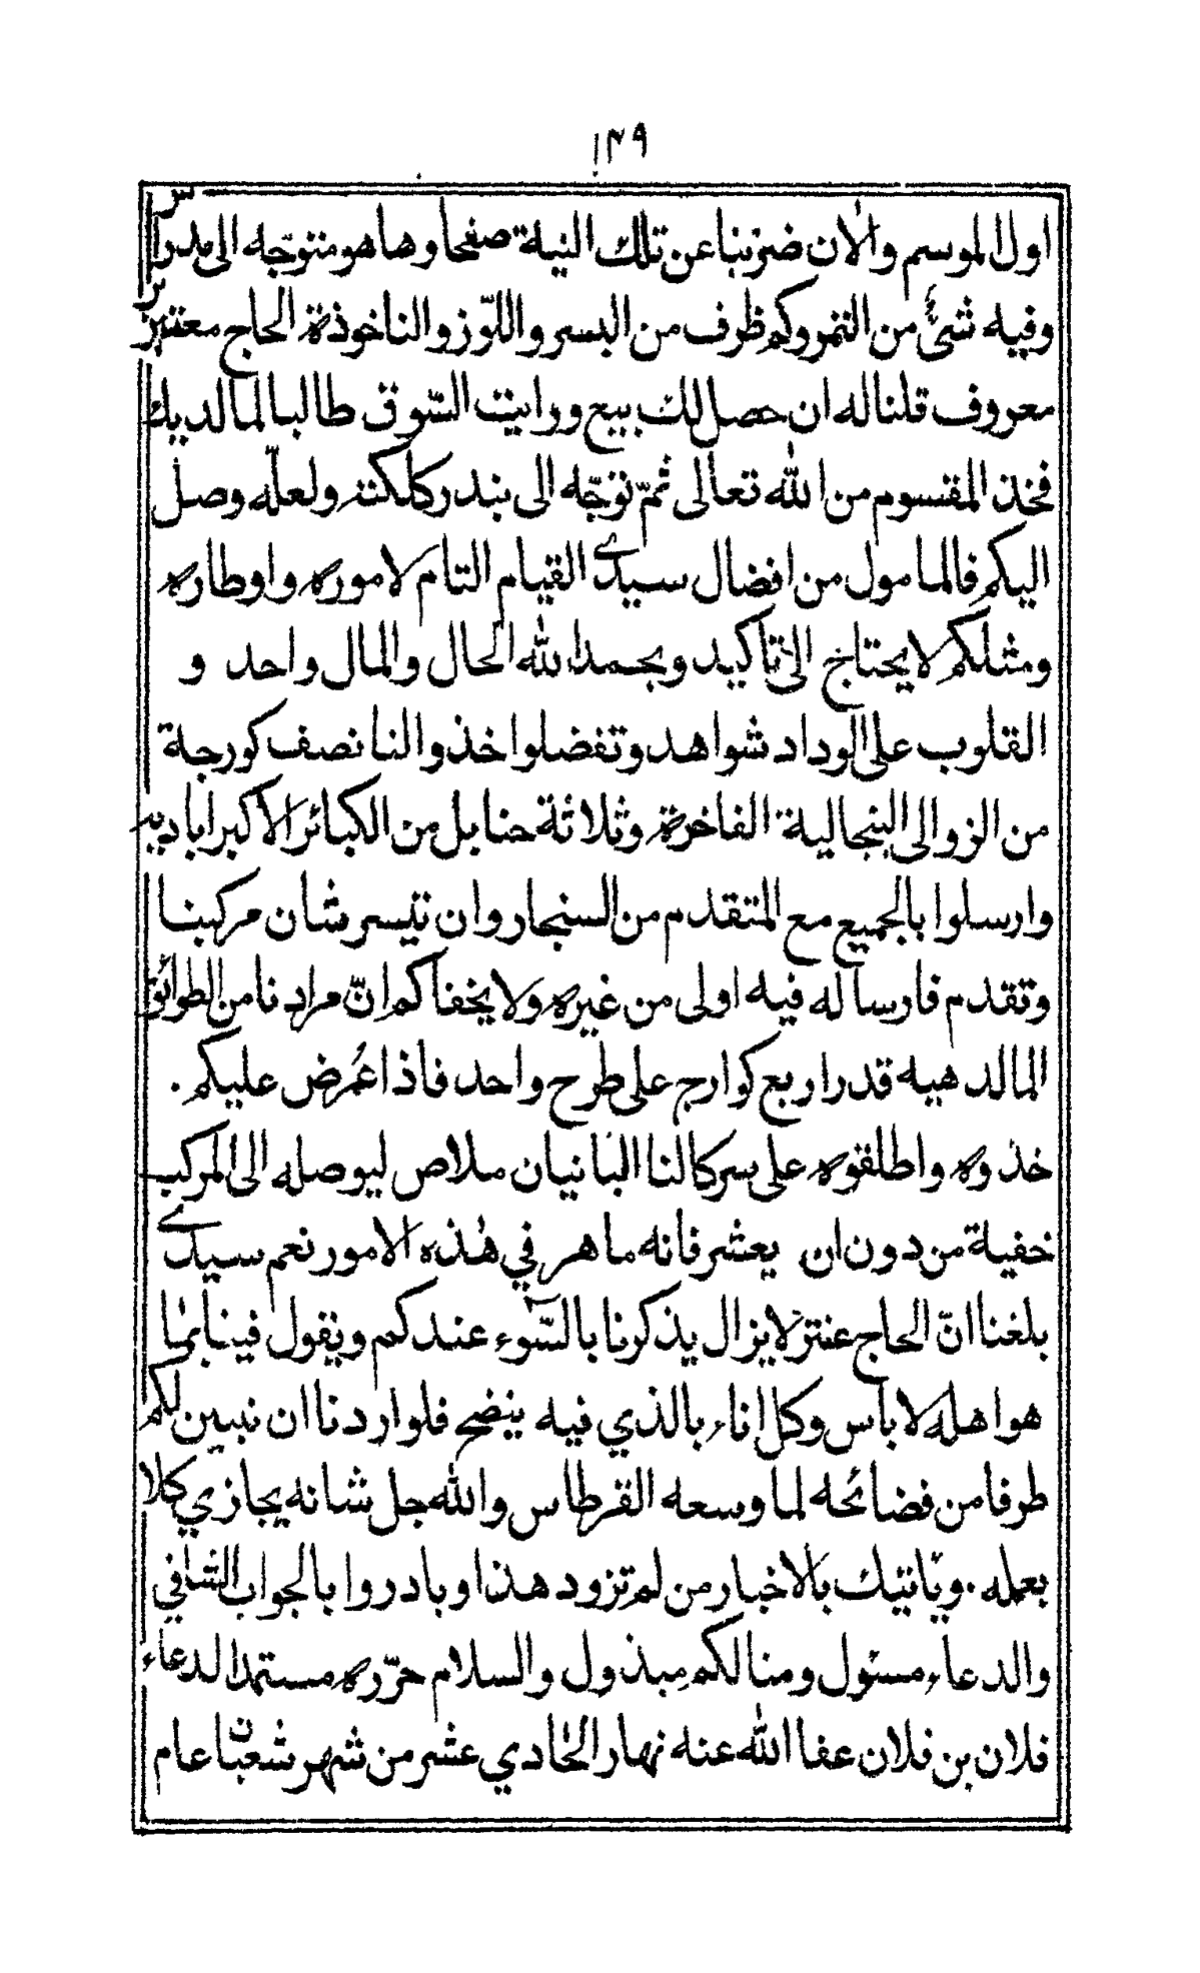 ١٤٩
اول الموسم والان ضربنا عن تلك النية صفحا وها هو متوجه الى مدراس
وفيه شئ من التمر وكم ظرف من البسر واللوز والناخوذة الحاج معتبر بن
معروف قلنا له ان حصل لك بيع ورايت السّوق طالبا لما لديك
فخذ المقسوم من الله تعالى ثمّ توجّه الى بندر كلكته ولعلّه وصل
اليكم فالمامول من افضال سيدي القيام التام لاموره واوطاره
ومثلكم لا يحتاج الى تاكيد وبحمد الله الحال والمال واحد و
القلوب على الوداد شواهد وتفضلوا خذوا لنا نصف كورجة
من الزوالى البنجالية الفاخرة وثلاثة حنابل من الكبائر الاكبرابادية
وارسلوا بالجميع مع المتقدم من السنجار وان تيسر شان مركبنا
وتقدم فارساله فيه اولى من غيره ولا يخفاكم انّ مرادنا من الطوائق
المالدهيه قدر اربع كوارج على طرح واحد فاذا عُرض عليكم ٠
خذوه واطلقوه على سركالنا البانيان ملاص ليوصله الى المركب
خفية من دون ان يعشر فانه ماهر في هذه الامور نعم سيدي
بلغنا انّ الحاج عنتر لا يزال يذكرنا بالسّوء عندكم ويقول فينا بما
هو اهله لا باس وكل اناء بالذي فيه ينضح فلو اردنا ان نبين لكم
طرفا من فضائحه لما وسعه القرطاس والله جل شانه يجازي كلا
بعمله ٠ ويأتيك بالاخبار من لم تزود هذا وبادروا بالجواب الشافي
والدعاء مسئول ومنا لكم مبذول والسلام حرّره مستمد الدعاء
فلان بن فلان عفا الله عنه نهار الحادي عشر من شهر شعبان عام